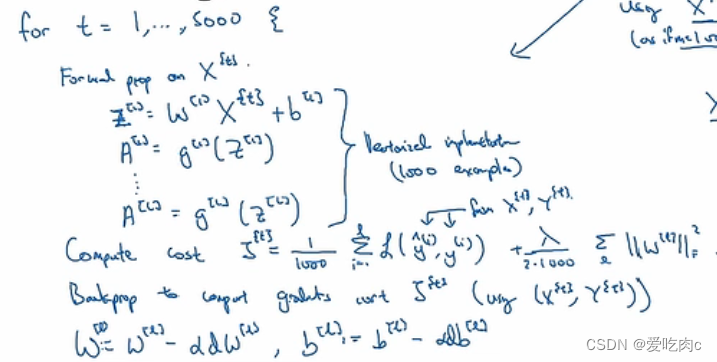 for t = 1,..., 5000 {
using X
(as if m=1000
Forward prop on X^{t}.
Z^[1] = W^[1] X^{t} + b^[1]
A^[1] = g^[1](Z^[1])
⋮
A^[L] = g^[L](Z^[L])
Vectorized implementation
(1000 examples)
from X^{t}, Y^{t}.
Compute cost J^{t} = 1/1000 Σ_{i=1}^{l} L(ŷ^(i), y^(i)) + λ/(2·1000) Σ_l ||W^[l]||_F^2.
Backprop to compute gradients wrt J^{t} (using (X^{t}, Y^{t}))
W^[l] := W^[l] - αdW^[l], b^[l] := b^[l] - αdb^[l]
CSDN @爱吃肉c